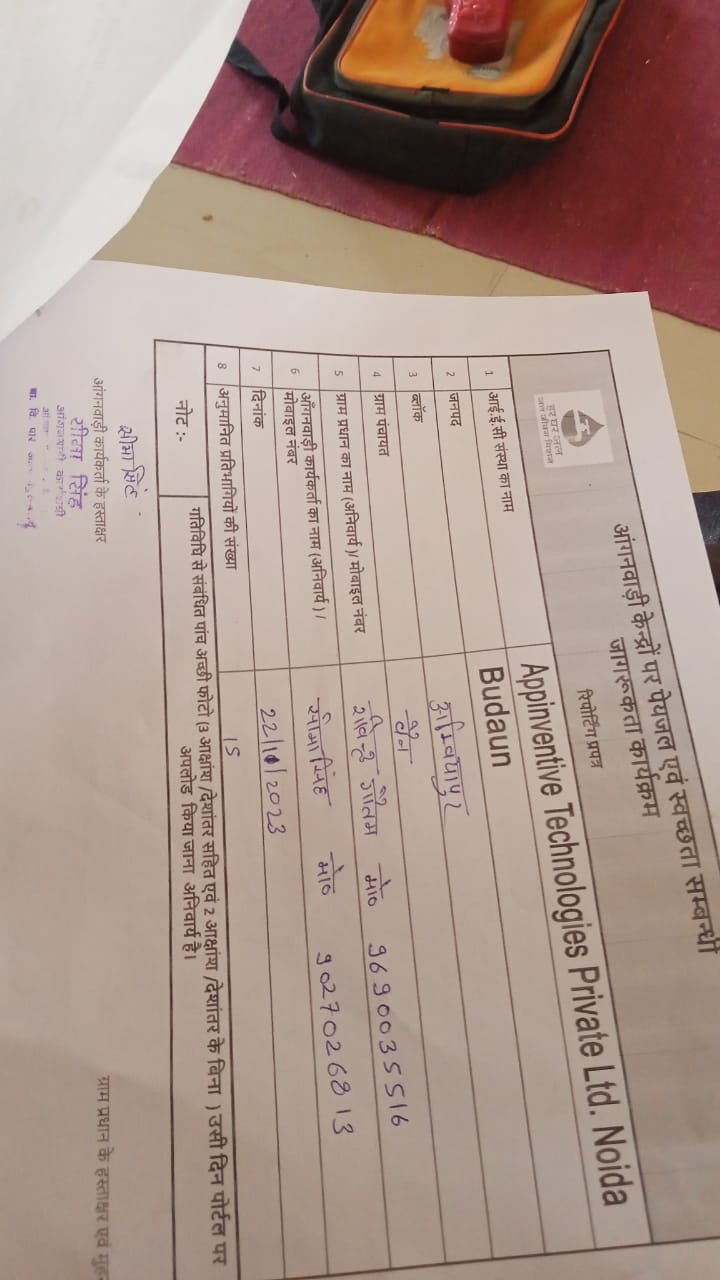 हर घर जल
जल जीवन मिशन
आंगनवाड़ी केन्द्रों पर पेयजल एवं स्वच्छता सम्बन्धी
जागरूकता कार्यक्रम
रिपोर्टिंग प्रपत्र
1 आई.ई.सी संस्था का नाम Appinventive Technologies Private Ltd. Noida
2 जनपद Budaun
3 ब्लॉक
4 ग्राम पंचायत
5 ग्राम प्रधान का नाम (अनिवार्य )/ मोबाइल नंबर गौतम मो० 9690035516
6 आँगनवाड़ी कार्यकर्ता का नाम (अनिवार्य ) /
मोबाइल नंबर
सीमा सिंह मो० 9027026813
7 दिनांक 22/11/2023
8 अनुमानित प्रतिभागियों की संख्या 15
नोट :- गतिविधि से संबंधित पांच अच्छी फोटो (3 आक्षांश /देशांतर सहित एवं 2 आक्षांश /देशांतर के बिना ) उसी दिन पोर्टल पर
अपलोड किया जाना अनिवार्य है।
सीमा सिंह
आंगनवाड़ी कार्यकर्ता के हस्ताक्षर
ग्राम प्रधान के हस्ताक्षर एवं
सीमा सिंह
आंगनवाड़ी कार्यकर्त्री